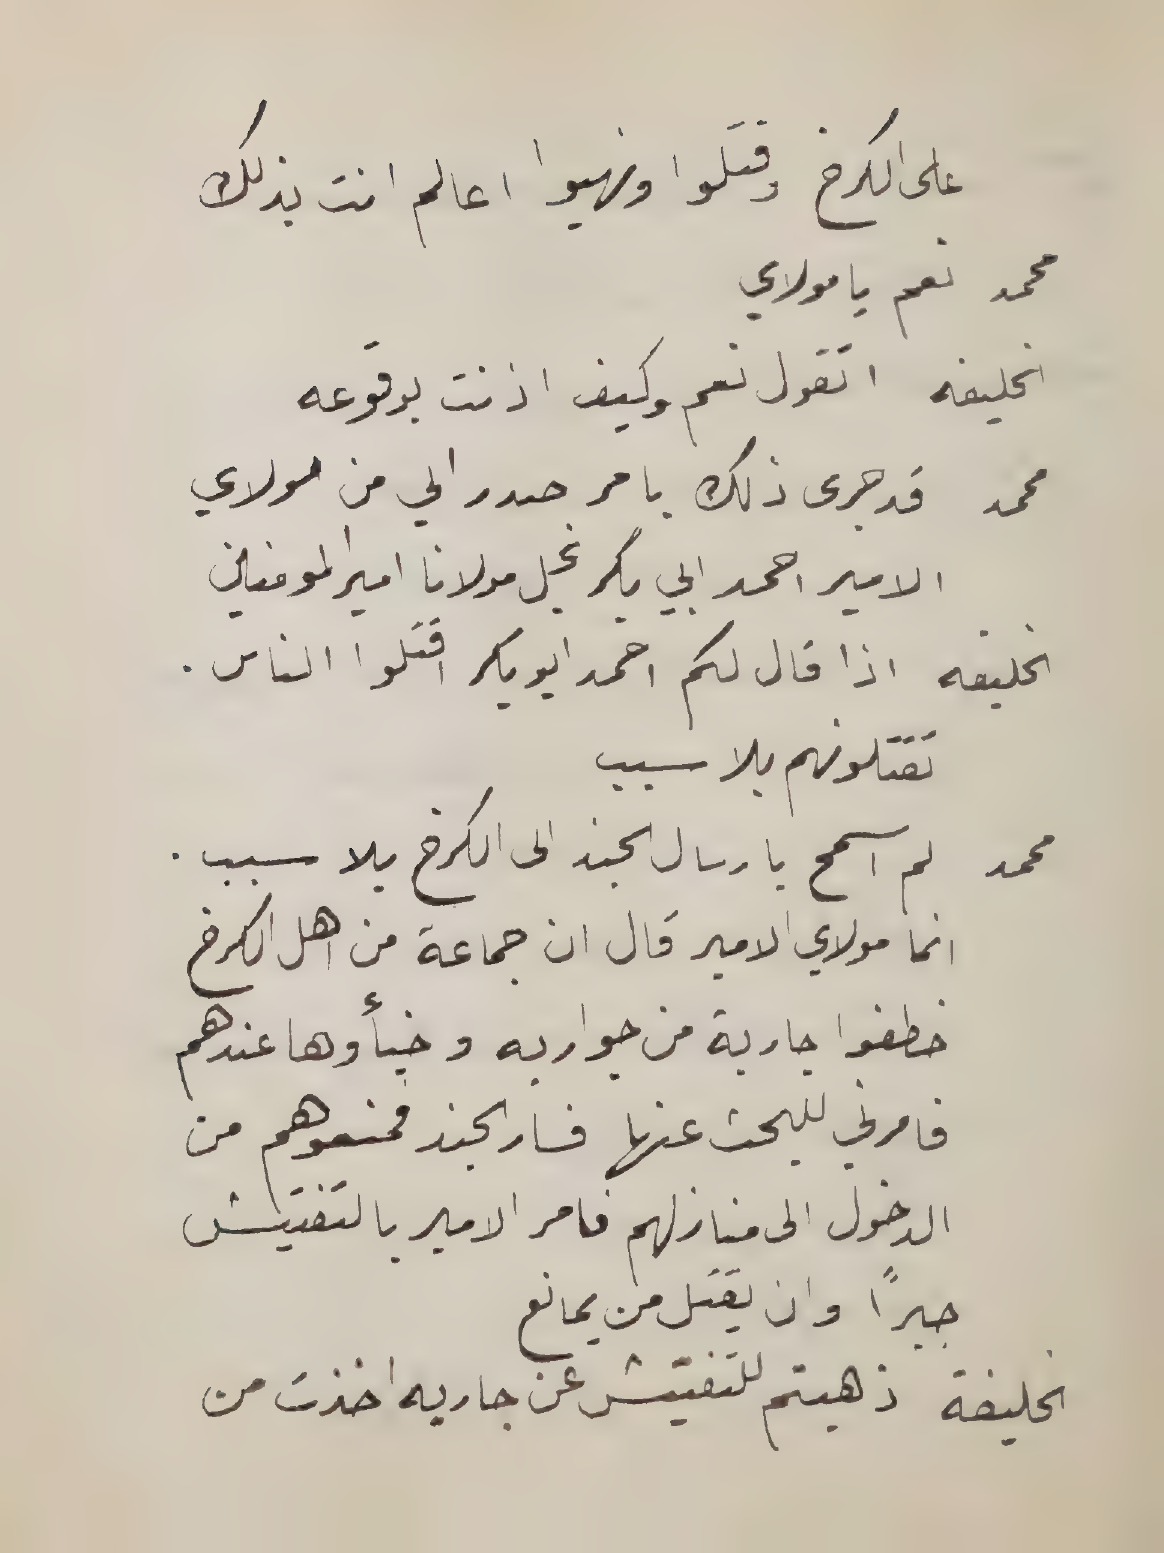 على الكرخ وقتلوا ونهبوا اعالم انت بذلك
محمد نعم يا مولاي
الخليفه اتقول نعم وكيف اذنت بوقوعه
محمد قد جرى ذلك بامر صدر الي من مولاي
الامير احمد ابي بكر نجل مولانا امير المومنين
الخليفه اذا قال لكم احمد ابو بكر اقتلوا الناس .
تقتلونهم بلا سبب
محمد لم اسمح بارسال الجند الى الكرخ بلا سبب .
انما مولاي الامير قال ان جماعة من اهل الكرخ
خطفوا جارية من جواريه وخبأوها عندهم
فامرني للبحث عنها فسار الجند فمنعوهم من
الدخول الى منازلهم فامر الامير بالتفتيش
جبراً وان يقتل من يمانع
الخليفة ذهبتم للتفتيش عن جاريه اخذت من